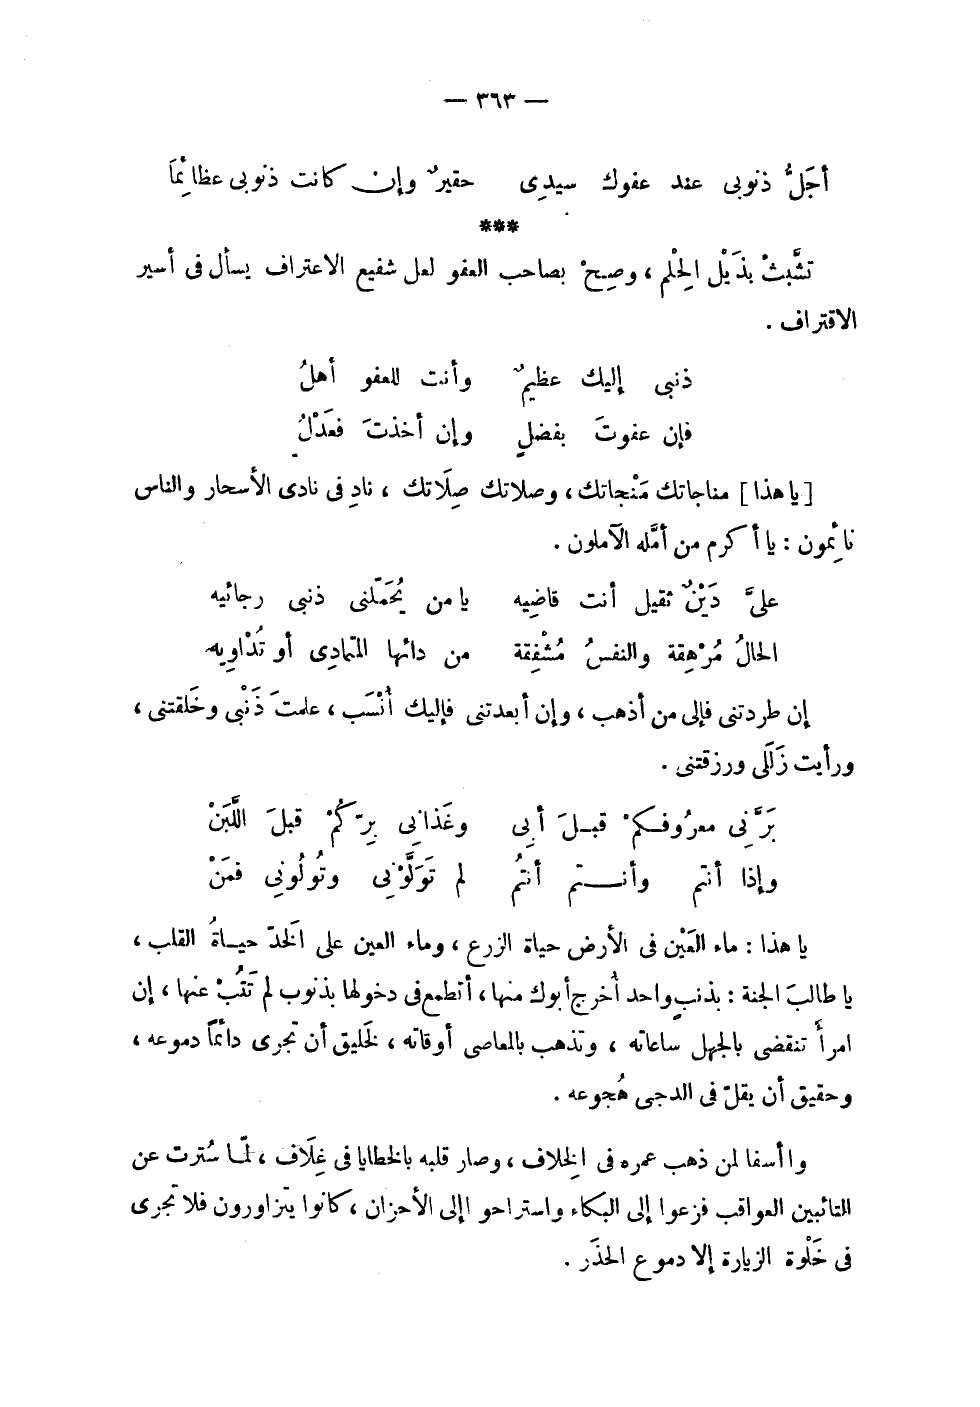 — ٣٦٣ —
أجَلُّ ذنوبى عند عفوك سيدِى حقيرٌ وإن كانت ذنوبى عظائِمَا
***
تشَّبثْ بذَيْل الِحْلم ، وصِحْ بصاحب العفو لعل شفيع الاعتراف يسأل فى أسير
الاقتراف .
ذنبى إليك عظيمٌ وأنت للعفو أهلُ
فإن عفوتَ بفضلٍ وإن أخذتَ فعَدْلُ
[ يا هذا ] مناجاتك مَنْجاتك ، وصلاتك صِلَاتك ، نادِ فى نادى الأسحار والناس
نائِمون : يا أكرم من أمَّله الآملون .
علىَّ دَيْنٌ ثقيل أنت قاضِيه يا من يُحَمّلنى ذنبى رجائيه
الحالُ مُرْهِقة والنفسُ مُشْفِقة من دائها المتمادِى أو تُدْاوِيه
إن طردتنى فإلى من أذهب ، وإن أبعدتنى فإليك أُنْسَب ، علمتَ ذَنْبى وخَلقتنى ،
ورأيت زَلَلى ورزقتنى .
بَرَّنِى معرُوفكمْ قبلَ أبِى وغَذانِى بِرّكُمْ قبلَ اللَّبَنْ
وإذا أنتم وأنتم أنتُم لم تَوَلَّوْنِى وتُولُونِى فمَنْ
يا هذا : ماء العَيْن فى الأرض حياة الزرع ، وماء العين على الَخدّ حياةُ القلب ،
يا طالبَ الجنة : بذنبٍ واحد أُخرج أبوك منها ، أتطمع فى دخولها بذنوب لم تَتُبْ عنها ، إن
امرأً تنقضى بالجهل ساعاته ، وتذهب بالمعاصى أوقاته ، لَخليق أن تجرى دائمًا دموعه ،
وحقيق أن يقلّ فى الدجى هُجوعه .
وا أسفا لمن ذهب عمره فى الِخلاف ، وصار قلبه بالخطايا فى غِلَاف ، لمّا سُترت عن
التائبين العواقب فزعوا إلى البكاء واستراحوا إلى الأحزان ، كانوا يتزاورون فلا تجرى
فى خَلْوة الزيارة إلا دموع الحذَر .